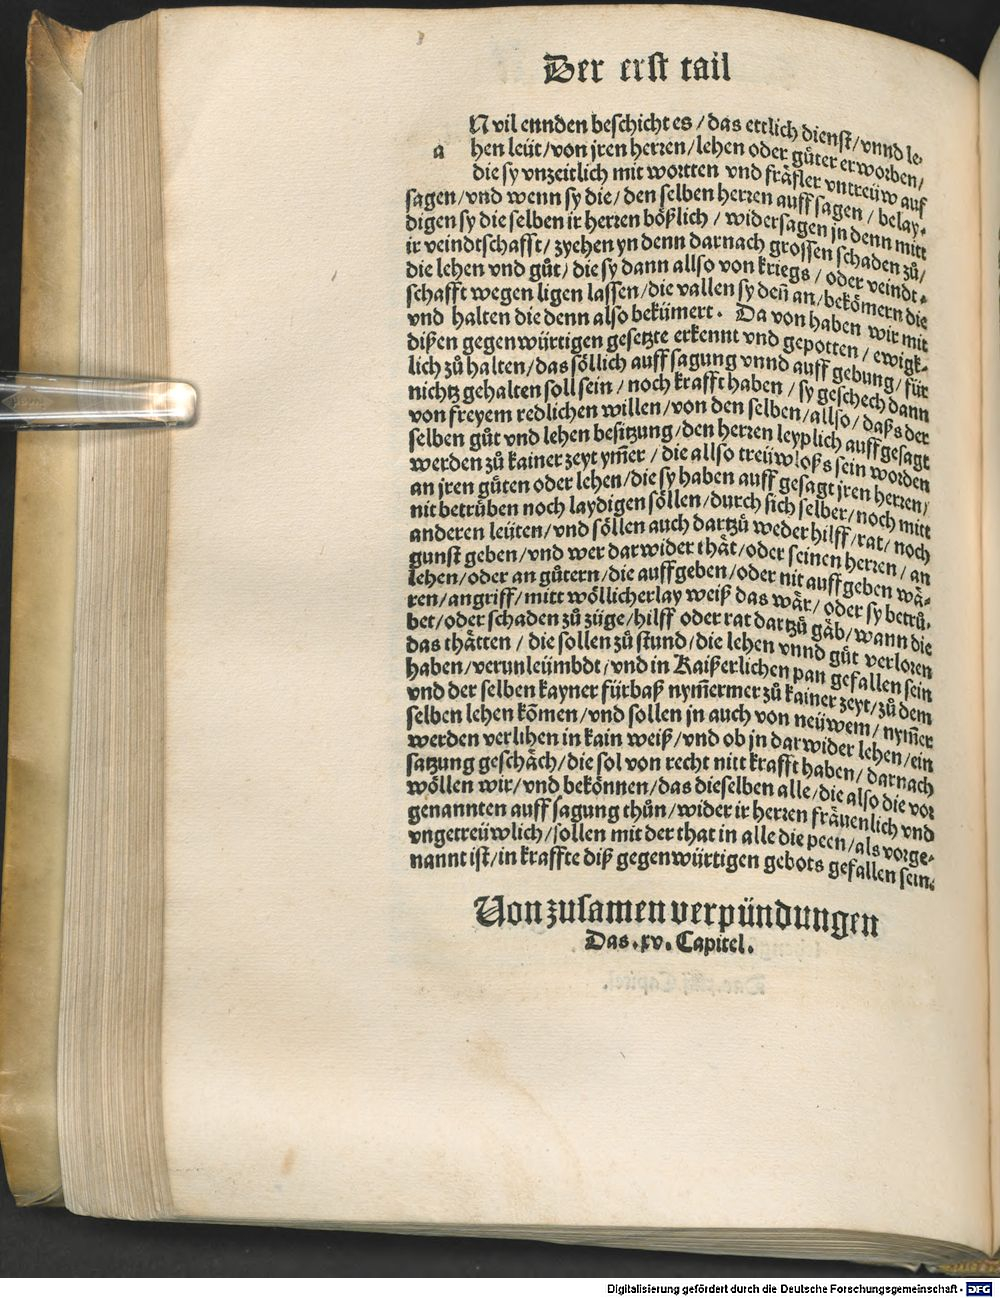 Der erst tail
N vil ennden beschicht es / das ettlich dienst / vnnd le-
a hen leüt / von jren herren / lehen oder gůter erworben /
die sy vnzeitlich mit wortten vnd fräfler vntreüw auf
sagen / vnd wenn sy die / den selben herren auff sagen / belay-
digen sy die selben ir herren bößlich / widersagen jn denn mitt
ir veindtschafft / zyehen yn denn darnach grossen schaden zů /
die lehen vnd gůt / die sy dann allso von kriegs / oder veindt-
schafft wegen ligen lassen / die vallen sy deñ an / bekömern die
vnd halten die denn also bekümert. Da von haben wir mit
dißen gegenwürtigen gesetzte erkennt vnd gepotten / ewigk-
lich zů halten / das söllich auff sagung vnnd auff gebung / für
nichtz gehalten soll sein / noch krafft haben / sy geschech dann
von freyem redlichen willen / von den selben / allso / daß s der
selben gůt vnd lehen besitzung / den herren leyplich auff gesagt
werden zů kainer zeyt ym̃er / die allso treüwloß s sein worden
an jren gůten oder lehen / die sy haben auff gesagt jren herren /
nit betrůben noch laydigen söllen / durch sich selber / noch mitt
anderen leüten / vnd söllen auch dartzů weder hilff / rat / noch
gunst geben / vnd wer darwider thät / oder seinen herren / an
lehen / oder an gůtern / die auffgeben / oder nit auff geben wä-
ren / angriff / mitt wöllicherlay weiß das wär / oder sy betrů-
bet / oder schaden zů züge / hilff oder rat dartzů gäb / wann die
das thätten / die sollen zů stund / die lehen vnnd gůt verloren
haben / verunleümbdt / vnd in Kaißerlichen pan gefallen sein
vnd der selben kayner fürbaß nym̃ermer zů kainer zeyt / zů dem
selben lehen kõmen / vnd sollen jn auch von neüwem / nym̃er
werden verlihen in kain weiß / vnd ob jn darwider lehen / ein
satzung geschäch / die sol von recht nitt krafft haben / darnach
wöllen wir / vnd bekönnen / das dieselben alle / die also die vor
genannten auff sagung thůn / wider ir herren fräuenlich vnd
vngetreüwlich / sollen mit der that in alle die peen / als vorge-
nannt ist / in kraffte diß gegenwürtigen gebots gefallen sein.
Von zusamen verpündungen
Das .xv. Capitel.
Digitalisierung gefördert durch die Deutsche Forschungsgemeinschaft - DFG